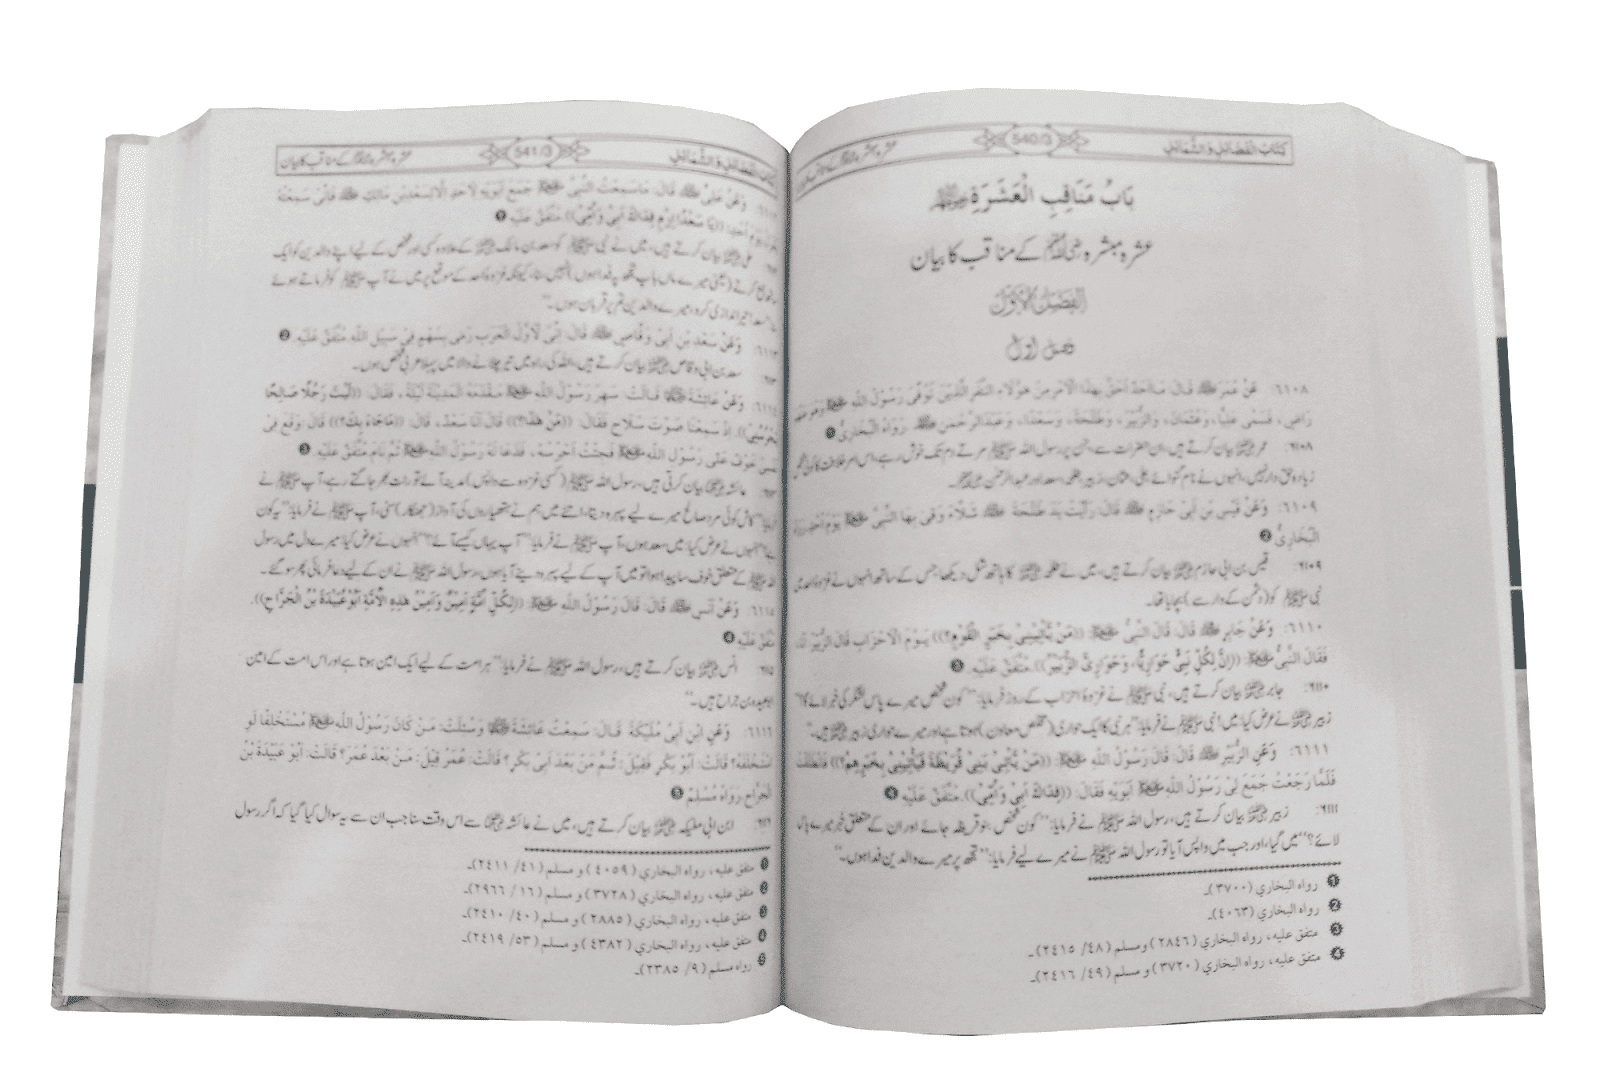 كتاب الفضائل والشمائل 540/3 عشرہ مبشرہ کے مناقب کا بیان
بَابُ مَنَاقِبِ الْعَشَرَةِ
عشرہ مبشرہ رضی اللہ عنہم کے مناقب کا بیان
الفَصْلُ الْأَوَّلُ
فصل اول
٦١٠٨: عَنْ عُمَرَ قَالَ: مَا أَحَدٌ أَحَقُّ بِهَذَا الْأَمْرِ مِنْ هَؤُلَاءِ النَّفَرِ الَّذِينَ تُوُفِّيَ رَسُولُ اللهِ ﷺ وَهُوَ عَنْهُمْ
رَاضٍ، فَسَمَّى عَلِيًّا، وَعُثْمَانَ، وَالزُّبَيْرَ، وَطَلْحَةَ، وَسَعْدًا، وَعَبْدَ الرَّحْمَنِ رَوَاهُ الْبُخَارِيُّ ❶
۶۱۰۸: عمر بیان کرتے ہیں، ان حضرات سے، جن پر رسول اللہ ﷺ مرتے دم تک خوش رہے، اس امر خلافت کا کوئی
زیادہ حق دار نہیں، انہوں نے نام گنوائے علی، عثمان، زبیر، طلحہ، سعد اور عبدالرحمن
٦١٠٩: وَعَنْ قَيْسِ بْنِ أَبِي حَازِمٍ قَالَ: رَأَيْتُ يَدَ طَلْحَةَ شَلَّاءَ وَقَى بِهَا النَّبِيَّ ﷺ يَوْمَ أُحُدٍ. رَوَاهُ
الْبُخَارِيُّ ❷
۶۱۰۹: قیس بن ابی حازم بیان کرتے ہیں، میں نے طلحہ کا ہاتھ شل دیکھا، جس کے ساتھ انہوں نے غزوہ احد میں
نبی ﷺ کو (دشمن کے وار سے) بچایا تھا۔
٦١١٠: وَعَنْ جَابِرٍ قَالَ: قَالَ النَّبِيُّ ﷺ: ((مَنْ يَأْتِينِي بِخَبَرِ الْقَوْمِ؟)) يَوْمَ الْأَحْزَابِ قَالَ الزُّبَيْرُ: أَنَا،
فَقَالَ النَّبِيُّ ﷺ: ((إِنَّ لِكُلِّ نَبِيٍّ حَوَارِيًّا، وَحَوَارِيَّ الزُّبَيْرُ)). مُتَّفَقٌ عَلَيْهِ. ❸
۶۱۱۰: جابر بیان کرتے ہیں، نبی ﷺ نے غزوۂ احزاب کے روز فرمایا: ”کون شخص میرے پاس لشکر کی خبر لائے گا؟“
زبیر نے عرض کیا: میں! نبی ﷺ نے فرمایا: ”ہر نبی کا ایک حواری (مخلص معاون) ہوتا ہے اور میرے حواری زبیر ہیں۔“
٦١١١: وَعَنِ الزُّبَيْرِ قَالَ: قَالَ رَسُولُ اللهِ ﷺ: ((مَنْ يَأْتِي بَنِي قُرَيْظَةَ فَيَأْتِينِي بِخَبَرِهِمْ؟)) فَانْطَلَقْتُ
فَلَمَّا رَجَعْتُ جَمَعَ لِي رَسُولُ اللهِ ﷺ أَبَوَيْهِ فَقَالَ: ((فِدَاكَ أَبِي وَأُمِّي)). مُتَّفَقٌ عَلَيْهِ ❹
۶۱۱۱: زبیر بیان کرتے ہیں، رسول اللہ ﷺ نے فرمایا: ”کون شخص، بنو قریظہ جائے اور ان کے متعلق خبر میرے پاس
لائے؟“ میں گیا، اور جب میں واپس آیا تو رسول اللہ ﷺ نے میرے لیے فرمایا: ”تجھ پر میرے والدین فدا ہوں۔“
❶ رواه البخاري (٣٧٠٠)۔
❷ رواه البخاري (٤٠٦٣)۔
❸ متفق عليه، رواه البخاري (٢٨٤٦) ومسلم (٤٨/ ٢٤١٥)۔
❹ متفق عليه، رواه البخاري (٣٧٢٠) و مسلم (٤٩/ ٢٤١٦)۔
كتاب الفضائل والشمائل 541/3 عشرہ مبشرہ کے مناقب کا بیان
٦١١٢: وَعَنْ عَلِيٍّ قَالَ: مَا سَمِعْتُ النَّبِيَّ ﷺ جَمَعَ أَبَوَيْهِ لِأَحَدٍ إِلَّا لِسَعْدِ بْنِ مَالِكٍ فَإِنِّي سَمِعْتُهُ
يَوْمَ أُحُدٍ: ((يَا سَعْدُ! ارْمِ فِدَاكَ أَبِي وَأُمِّي)). مُتَّفَقٌ عَلَيْهِ ❶
علی بیان کرتے ہیں، میں نے نبی ﷺ کو سعد بن مالک کے علاوہ کسی اور شخص کے لیے اپنے والدین کو ایک
ساتھ جمع کرتے (یعنی میرے ماں باپ تجھ پر فدا ہوں) نہیں سنا، کیونکہ غزوہ احد کے موقع پر میں نے آپ ﷺ کو فرماتے ہوئے
سنا: ”سعد! تیر اندازی کرو، میرے والدین تم پر قربان ہوں۔“
٦١١٣: وَعَنْ سَعْدِ بْنِ أَبِي وَقَّاصٍ قَالَ: إِنِّي لَأَوَّلُ الْعَرَبِ رَمَى بِسَهْمٍ فِي سَبِيلِ اللهِ مُتَّفَقٌ عَلَيْهِ. ❷
سعد بن ابی وقاص بیان کرتے ہیں، اللہ کی راہ میں تیر چلانے والا میں پہلا عربی شخص ہوں۔
٦١١٤: وَعَنْ عَائِشَةَ قَالَتْ: سَهِرَ رَسُولُ اللهِ ﷺ مَقْدَمَهُ الْمَدِينَةَ لَيْلَةً، فَقَالَ: ((لَيْتَ رَجُلًا صَالِحًا
يَحْرُسُنِي)). إِذْ سَمِعْنَا صَوْتَ سِلَاحٍ فَقَالَ: ((مَنْ هَذَا؟)) قَالَ: أَنَا سَعْدٌ، قَالَ: ((مَا جَاءَ بِكَ؟)) قَالَ: وَقَعَ فِي
نَفْسِي خَوْفٌ عَلَى رَسُولِ اللهِ ﷺ فَجِئْتُ أَحْرُسُهُ، فَدَعَا لَهُ رَسُولُ اللهِ ﷺ ثُمَّ نَامَ مُتَّفَقٌ عَلَيْهِ. ❸
عائشہ بیان کرتی ہیں، رسول اللہ ﷺ (کسی غزوہ سے واپس) مدینہ آئے تو رات بھر جاگتے رہے، آپ ﷺ نے
فرمایا: ”کاش کوئی مرد صالح میرے لیے پہرہ دیتا۔“ اتنے میں ہم نے ہتھیاروں کی آواز (جھنکار) سنی، آپ ﷺ نے فرمایا: ”یہ کون
ہے؟“ انہوں نے عرض کیا: میں سعد ہوں، آپ ﷺ نے فرمایا: ”آپ یہاں کیسے آئے؟“ انہوں نے عرض کیا: میرے دل میں رسول
اللہ ﷺ کے متعلق خوف سا پیدا ہوا تو میں آپ کے لیے پہرہ دینے آیا ہوں، رسول اللہ ﷺ نے ان کے لیے دعا فرمائی پھر سو گئے۔
٦١١٥: وَعَنْ أَنَسٍ قَالَ: قَالَ رَسُولُ اللهِ ﷺ: ((لِكُلِّ أُمَّةٍ أَمِينٌ وَأَمِينُ هَذِهِ الْأُمَّةِ أَبُو عُبَيْدَةَ بْنُ الْجَرَّاحِ)).
مُتَّفَقٌ عَلَيْهِ ❹
انس بیان کرتے ہیں، رسول اللہ ﷺ نے فرمایا: ”ہر امت کے لیے ایک امین ہوتا ہے اور اس امت کے امین
ابوعبیدہ بن جراح ہیں۔“
٦١١٦: وَعَنِ ابْنِ أَبِي مُلَيْكَةَ قَالَ: سَمِعْتُ عَائِشَةَ وَسُئِلَتْ: مَنْ كَانَ رَسُولُ اللهِ ﷺ مُسْتَخْلِفًا لَوِ
اسْتَخْلَفَهُ؟ قَالَتْ: أَبُو بَكْرٍ فَقِيلَ: ثُمَّ مَنْ بَعْدَ أَبِي بَكْرٍ؟ قَالَتْ: عُمَرُ قِيلَ: مَنْ بَعْدَ عُمَرَ؟ قَالَتْ: أَبُو عُبَيْدَةَ بْنُ
الْجَرَّاحِ. رَوَاهُ مُسْلِمٌ ❺
ابن ابی ملیکہ بیان کرتے ہیں، میں نے عائشہ سے اس وقت سنا جب ان سے یہ سوال کیا گیا کہ اگر رسول
❶ متفق عليه، رواه البخاري (٤٠٥٩) و مسلم (٤١/ ٢٤١١)۔
❷ متفق عليه، رواه البخاري (٣٧٢٨) و مسلم (١٦/ ٢٩٦٦)۔
❸ متفق عليه، رواه البخاري (٢٨٨٥) و مسلم (٤٠/ ٢٤١٠)۔
❹ متفق عليه، رواه البخاري (٤٣٨٢) و مسلم (٥٣/ ٢٤١٩)۔
❺ رواه مسلم (٩/ ٢٣٨٥)۔